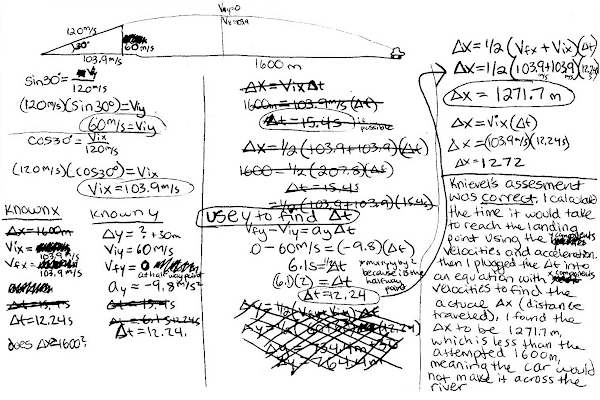 120m/s
30°
60m/s
103.9m/s
Viy=0
Vix=103.9
1600m
Sin30°= Viy
120m/s
(120m/s)(Sin30°)=Viy
60m/s=Viy
cos30°= Vix
120m/s
(120m/s)(cos30°)=Vix
Vix=103.9m/s
KnownX
Δx=1600m
Vix=
103.9m/s
Vfx=
103.9m/s
Δt=15.4s
Δt=12.24s
does Δx=1600?
Known Y
Δy=? +50m
Viy=60m/s
Vfy=0
at halfway point
ay=-9.8m/s²
Δt=15.4s
Δt=6.1s
Δt=12.24
Δx=VixΔt
1600m=103.9m/s(Δt)
Δt=15.4s
is possible
Δx=1/2(103.9+103.9)Δt
1600=1/2(207.8)(Δt)
Δt=15.4s
=1/2(103.9+103.9)(15.4s)
use y to find Δt
Vfy-Viy=ay Δt
0-60m/s=(-9.8)(Δt)
6.1s=1/2Δt
*mult by 2
because is the
halfway
point
(6.1)(2)=Δt
Δt=12.24
Δx=1/2(Vfx+Vix)(Δt)
Δx=1/2(103.9+103.9)(12.24)
m/s m/s
Δx=1271.7m
Δx=Vix(Δt)
Δx=(103.9m/s)(12.24s)
Δx=1272
Knievel's assesment
was correct. I calculated
the time it would take
to reach the landing
point using the y components
velocities and acceleration.
then I plugged the Δt into
an equation with x components
velocities to find the
actual Δx (distance
traveled). I found the
Δx to be 1271.7m,
which is less than the
attempted 1600m,
meaning the car would
not make it across the
river